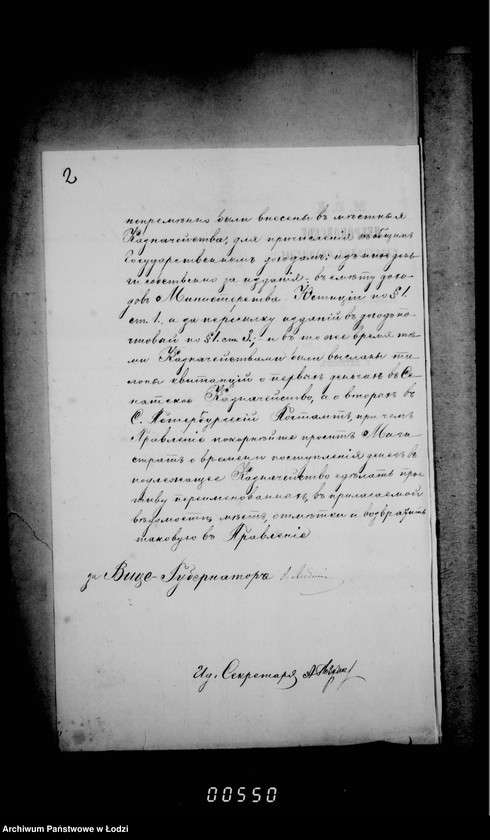 2
непремѣнно были внесены въ мѣстныя
Казначейства, для причисленія къ общимъ
Государственнымъ доходамъ:
собственно за изданія въ смѣту дохо-
довъ Министерства Юстиціи по § 1.
ст. 1., а за пересылку изданій въ доходъ по-
чтовый по § 1. ст. 3., и въ тоже время тѣ-
ми Казначействами были высланы та-
лоны квитанцій о первыхъ деньгахъ въ Се-
натское Казначейство, а о вторыхъ въ
С. Петербургскій Почтамтъ, при чемъ
Правленіе покорнѣйше проситъ Маги-
стратъ о времени поступленія денегъ въ
подлежащее Казначейство сдѣлать про-
тиву переименованныхъ въ прилагаемой
вѣдомости, мѣстъ, отмѣтки и возвратить
таковую въ Правленіе
за Вице-Губернатора
Ид. Секретаря
00550
Archiwum Państwowe w Łodzi